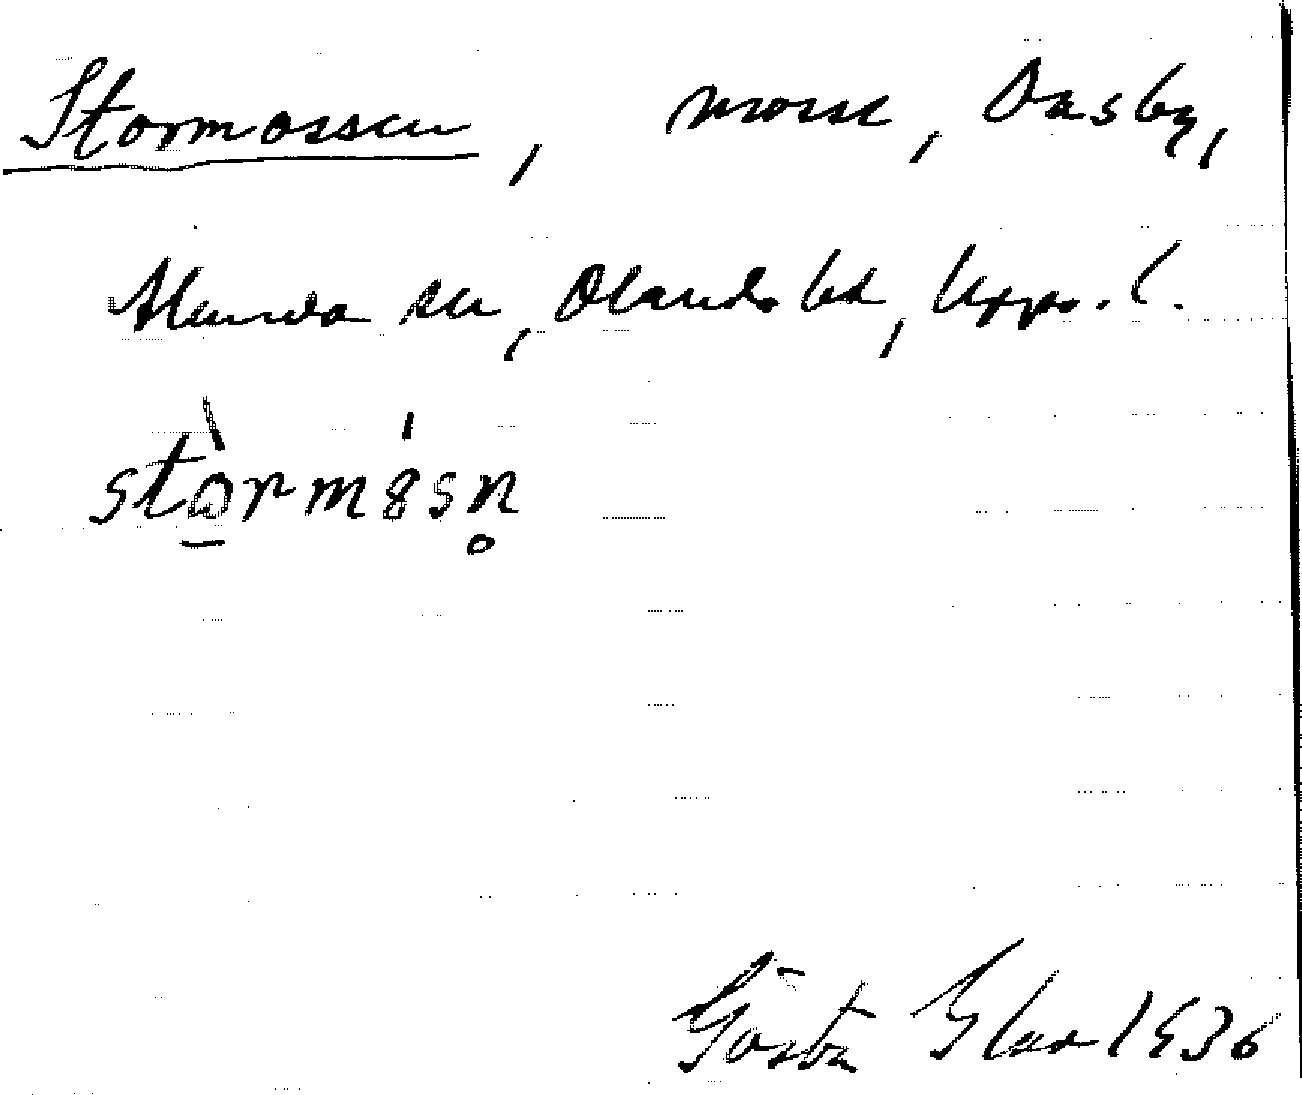 Stormossen, mosse, Dasby,
Alunda sn, Olands hd, Upps. l.
stormȯsn̥
Gösta 1936